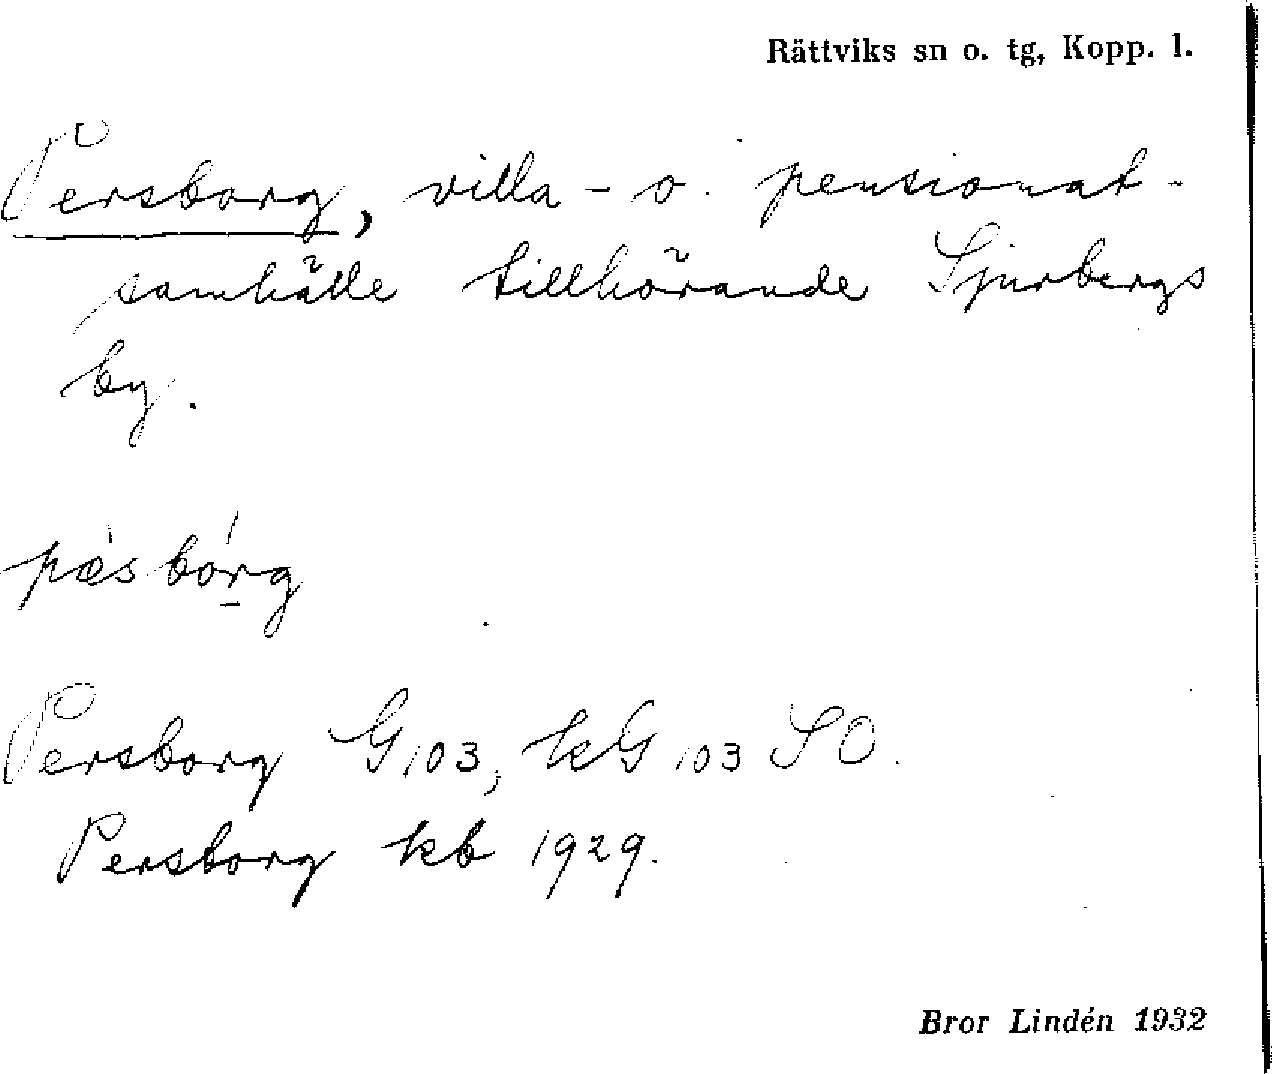 Rättviks sn o. tg, Kopp. l.
Persborg, villa- o. pensionat-
samhälle tillhörande Sjurbergs
by.
pæ̀sbórg
Persborg G103, kG 103 SO.
Persborg kb 1929.
Bror Lindén 1932